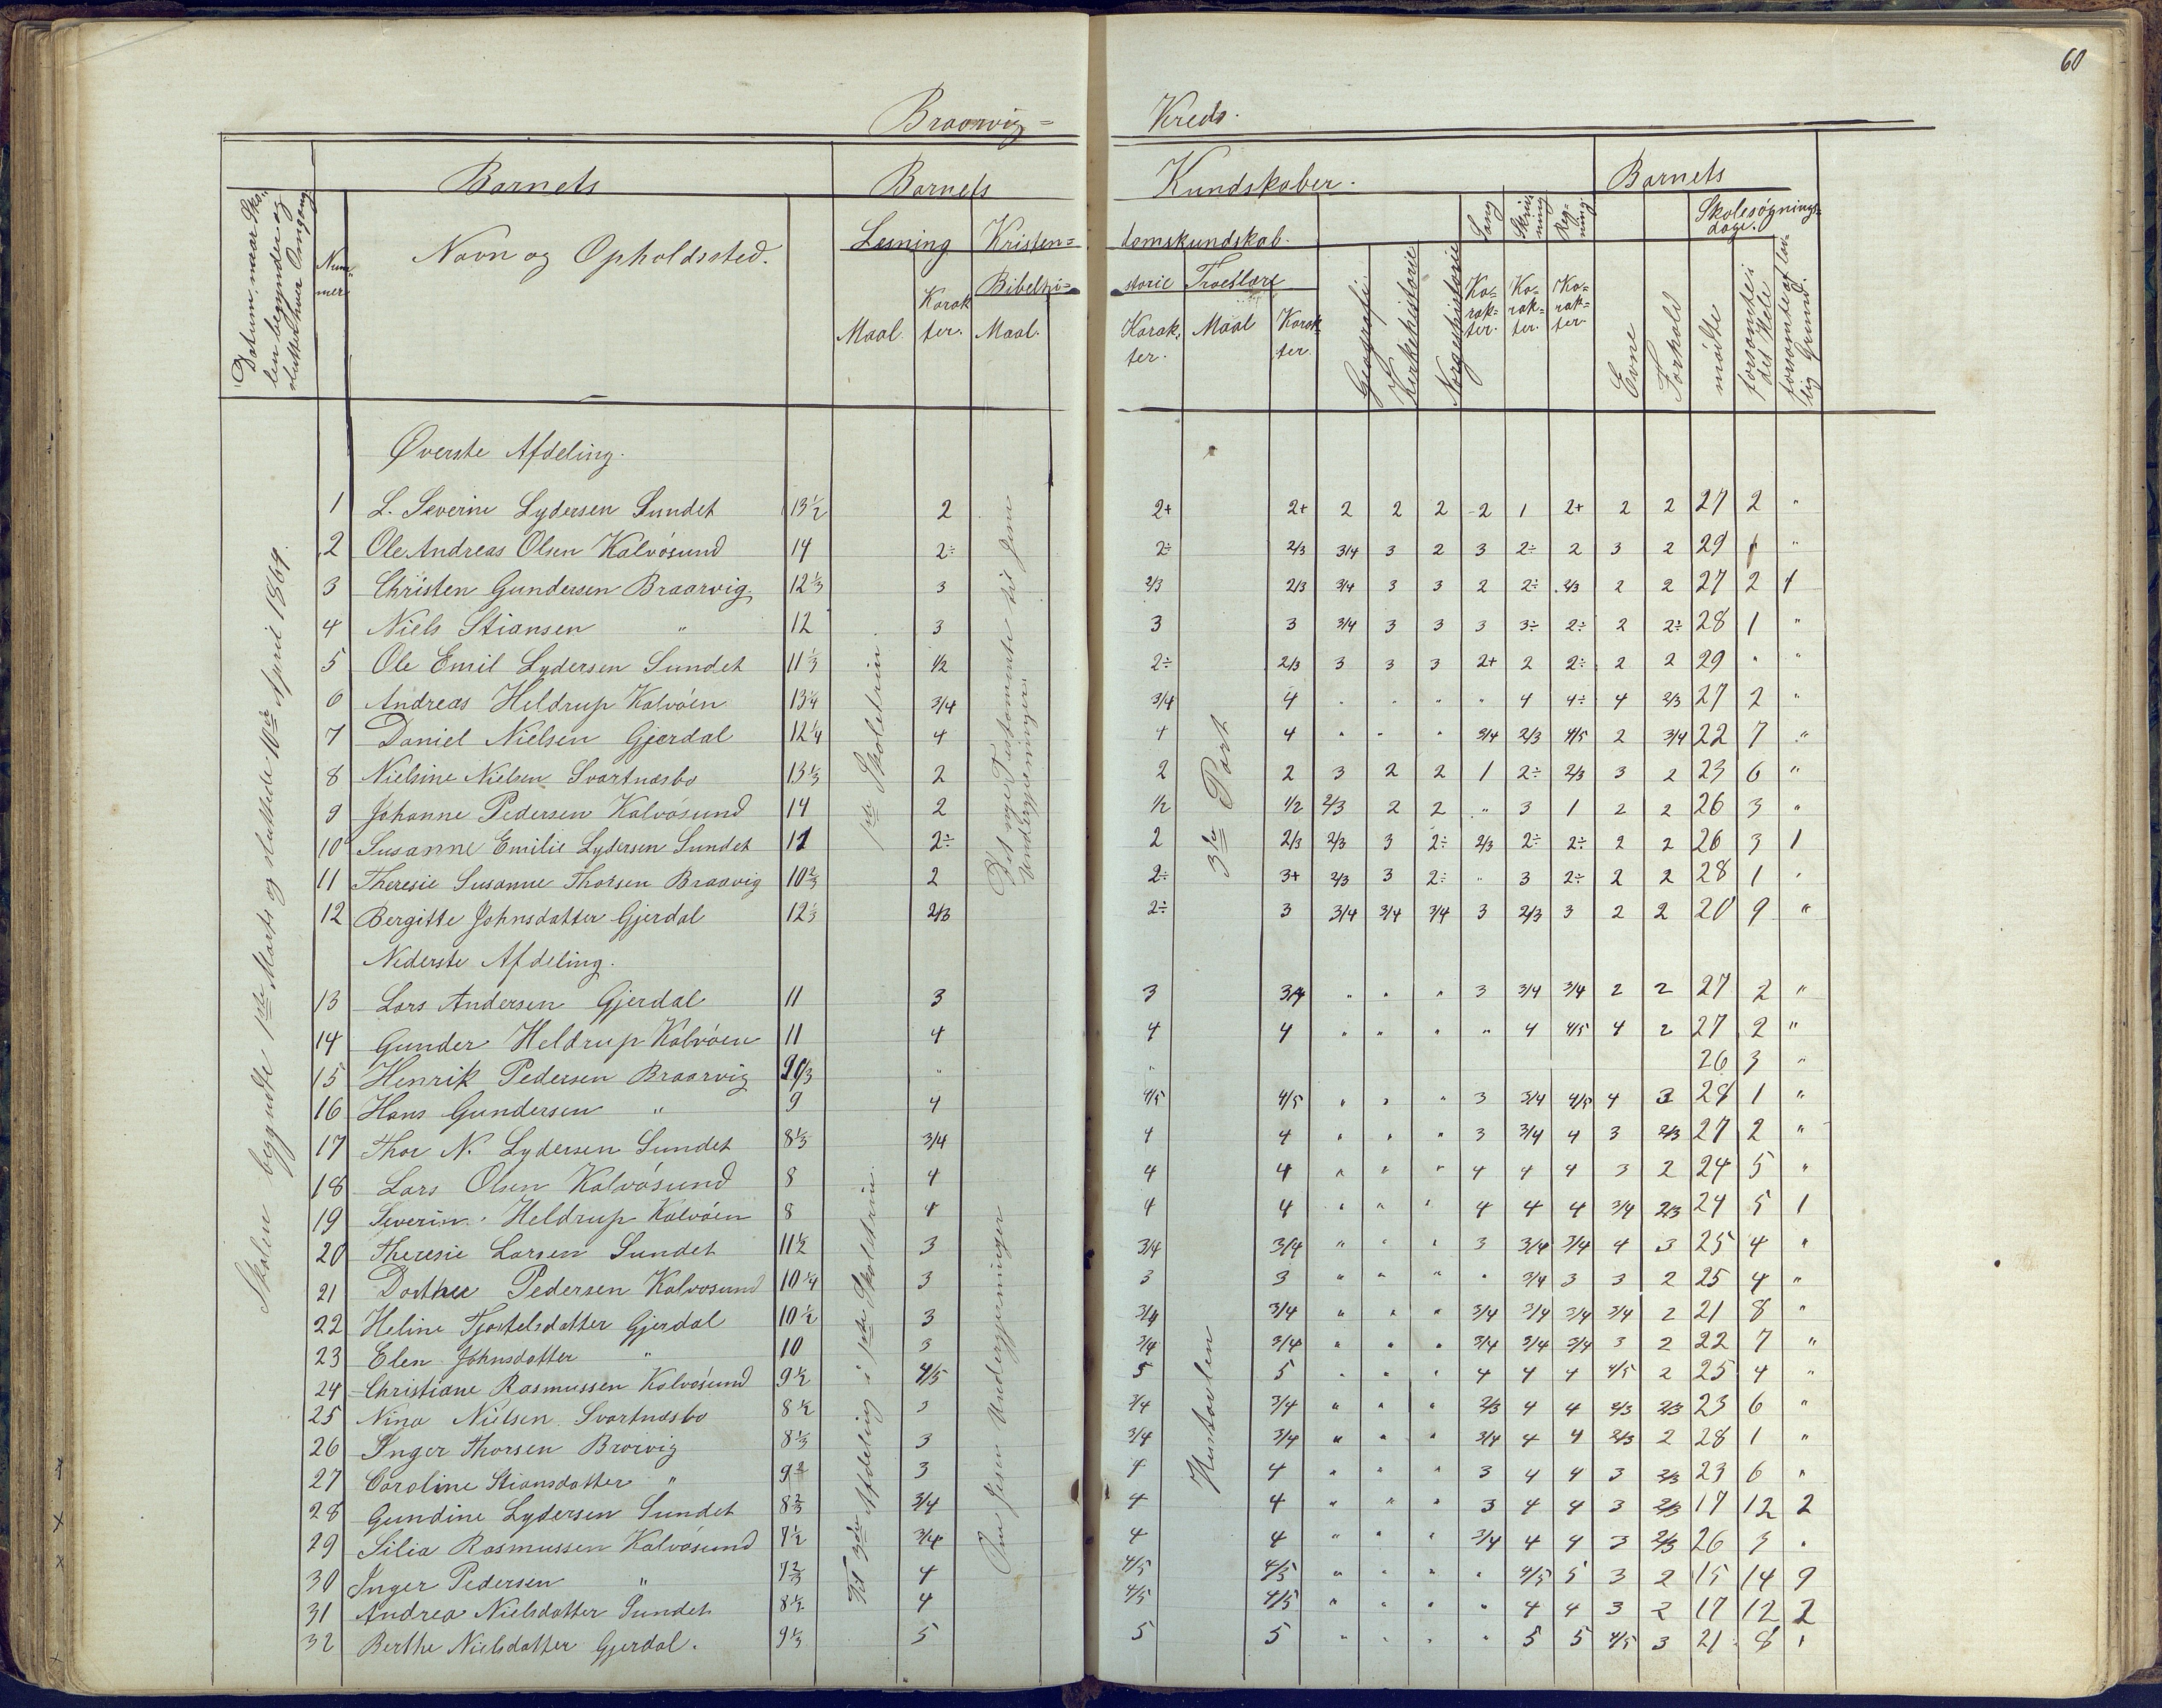 60
Braarvig = Kreds.
Datum, naar Skolen begynder og slutter hver Omgang
Barnets
Nummer
Navn og Opholdssted.
Barnets Kundskaber.
Læsning
Maal.
Karakter.
Kristendomskundskab.
Bibelhistorie
Maal.
Karakter.
Troeslære
Maal
Karakter.
Geografi
Kirkehistorie
Norgeshistorie
Sang
Karakter.
Skrivning
Karakter.
Regning
Karakter.
Barnets
Evne
Forhold
Skolesøgningsdage.
mødte
forsømte i det Hele
forsømte af lovlig Grund.
Skolen begyndte 1ste Marts og sluttede 10de April 1869.
Øverste Afdeling.
1ste Skoletrin
Det nye Testamente til Jesu Undergjerninger.
3die Part
1 L. Severine Lydersen Sundet 13½ 2 2+ 2+ 2 2 2 2 1 2+ 2 2 27 2 "
2 Ole Andreas Olsen Kalvøsund 14 2÷ 2÷ 2/3 3/4 3 2 3 2÷ 2 3 2 29 "
3 Christen Gundersen Braarvig 12⅓ 3 2/3 2/3 3/4 3 3 2 2÷ 2/3 2 2 27 2 1
4 Niels Stiansen " 12 3 3 3 3/4 3 3 3 3÷ 2÷ 2 2÷ 28 1 "
5 Ole Emil Lydersen Sundet 11⅓ 1/2 2÷ 2/3 3 3 3 2+ 2 2÷ 2 2 29 " "
6 Andreas Heldrup Kalvøen 13¼ 3/4 3/4 4 " " " " 4 4÷ 4 2/3 27 2 "
7 Daniel Nielsen Gjerdal 12¼ 4 4 4 " " " 3/4 2/3 4/5 2 3/4 22 7 "
8 Nielsine Nielsen Svartnæsbo 13⅓ 2 2 2 3 2 2 1 2÷ 2/3 3 2 23 6 "
9 Johanne Pedersen Kalvøsund 14 2 1/2 1/2 2/3 2 2 " 3 1 2 2 26 3 "
10 Susanne Emilie Lydersen Sundet 11 2÷ 2 2/3 2/3 3 2÷ 2/3 2÷ 2÷ 2 2 26 3 1
11 Theresie Susanne Thorsen Braavig 10⅔ 2 2÷ 3+ 2/3 3 2÷ " 3 2÷ 2 2 28 1 "
12 Bergitte Johnsdatter Gjerdal 12⅓ 2/3 2÷ 3 3/4 3/4 3/4 3 2/3 3 2 2 20 9 "
Nederste Afdeling.
Til 3die Afdeling i 1ste Skoletrin
Om Jesu Undergjerninger
Hustavlen
13 Lars Andersen Gjerdal 11 3 3 3/4 " " " 3 3/4 3/4 2 2 27 2 "
14 Gunder Heldrup Kalvøen 11 4 4 4 " " " " 4 4/5 4 2 27 2 "
15 Henrik Pedersen Braarvig " " 26 3 "
16 Hans Gundersen " 9 4 4/5 4/5 " " " 3 3/4 4/5 4 3 28 1 "
17 Thor N. Lydersen Sundet 8⅓ 3/4 4 4 " " " 3 3/4 4 3 2/3 27 2 "
18 Lars Olsen Kalvøsund 8 4 4 4 " " " 4 4 4 3 2 24 5 "
19 Severin Heldrup Kalvøen 8 4 4 4 " " " 4 4 4 3/4 2/3 24 5 1
20 Theresie Larsen Sundet 11½ 3 3/4 3/4 " " " 3 3/4 3/4 4 3 25 4 "
21 Dorthee Pedersen Kalvøsund 10¼ 3 3 3 " " " " 3/4 3 3 2 25 4 "
22 Heline Tjostelsdatter Gjerdal 10½ 3 3/4 3/4 " " " 3/4 3/4 3/4 3/4 2 21 8 "
23 Elen Johnsdatter " 10 3 3/4 3/4 " " " 3/4 3/4 3/4 3 2 22 7 "
24 Christiane Rasmussen Kalvøsund 9½ 4/5 5 5 " " " 4 4 4 4/5 2 25 4 "
25 Nina Nielsen Svartnæsbo 8½ 3 3/4 3/4 " " " 2/3 4 4 2/3 2/3 23 6 "
26 Inger Thorsen Brorvig 8⅓ 3 3/4 3/4 " " " 3/4 4 4 2/3 2 28 1 "
27 Caroline Stiansdatter " 3 4 4 " " " 3 4 4 3 2/3 23 6 "
28 Gundine Lydersen Sundet 8⅔ 3/4 4 4 " " " 3 4 4 3 2/3 17 12 2
29 Silia Rasmussen Kalvøsund 7½ 3/4 4 4 " " " 3/4 4 4 3 2/3 26 3 "
30 Inger Pedersen " 7⅔ 4 4/5 4/5 " " " " 4/5 5 3 2 15 14 9
31 Andrea Nielsdatter Sundet 8½ 4 4/5 4/5 " " " " 4 4 3 2 17 12 2
32 Berthe Nielsdatter Gjerdal. 9⅓ 5 5 5 " " " " 5 5 4/5 3 21 8 1